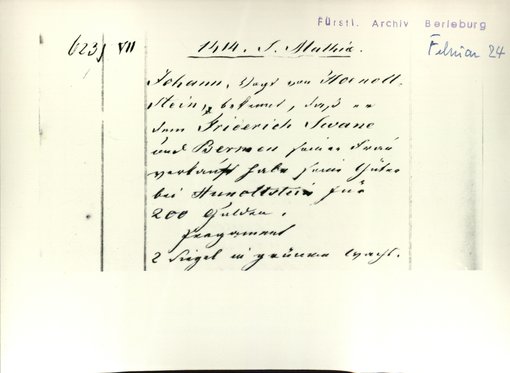 Fürstl. Archiv Berleburg
623) VII
1414. S. Mathie.
Februar 24
Johann, Vogt von Hunolt-
stein, bekennt, daß er
dem Friderich Swane
und Bermen seiner Frau
verkauft habe seine Güter
bei Hunoltstein für
200 Gulden.
Pergament
2 Siegel in grünem Wachs.